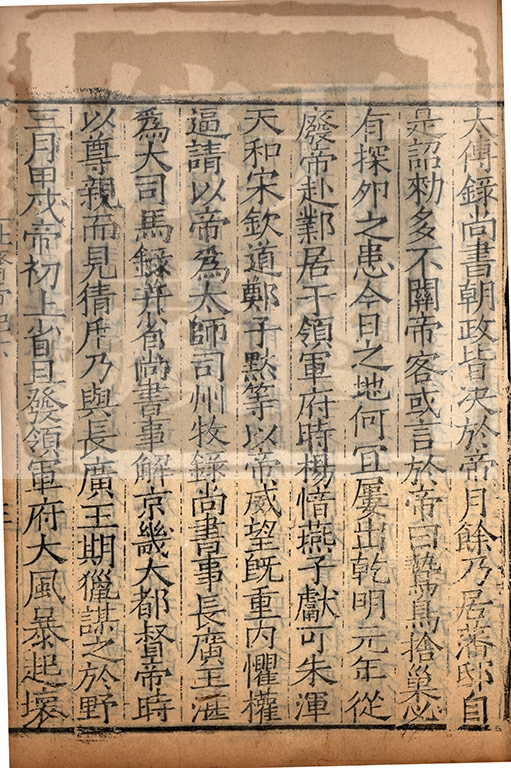 太傅錄尚書朝政皆決於帝月餘乃居藩邸自
是詔勑多不關帝客或言於帝曰鷙鳥捨巢必
有探卵之患今日之地何宜屢出乾明元年從
廢帝赴鄴居于領軍府時楊愔燕子獻可朱渾
天和宋欽道鄭子黙等以帝威望旣重内懼權
逼請以帝爲太師司州牧錄尚書事長廣王湛
爲大司馬錄并省尚書事解京畿大都督帝時
以尊親而見猜斥乃與長廣王期獵謀之於野
三月甲戌帝初上省旦發領軍府大風暴起壞